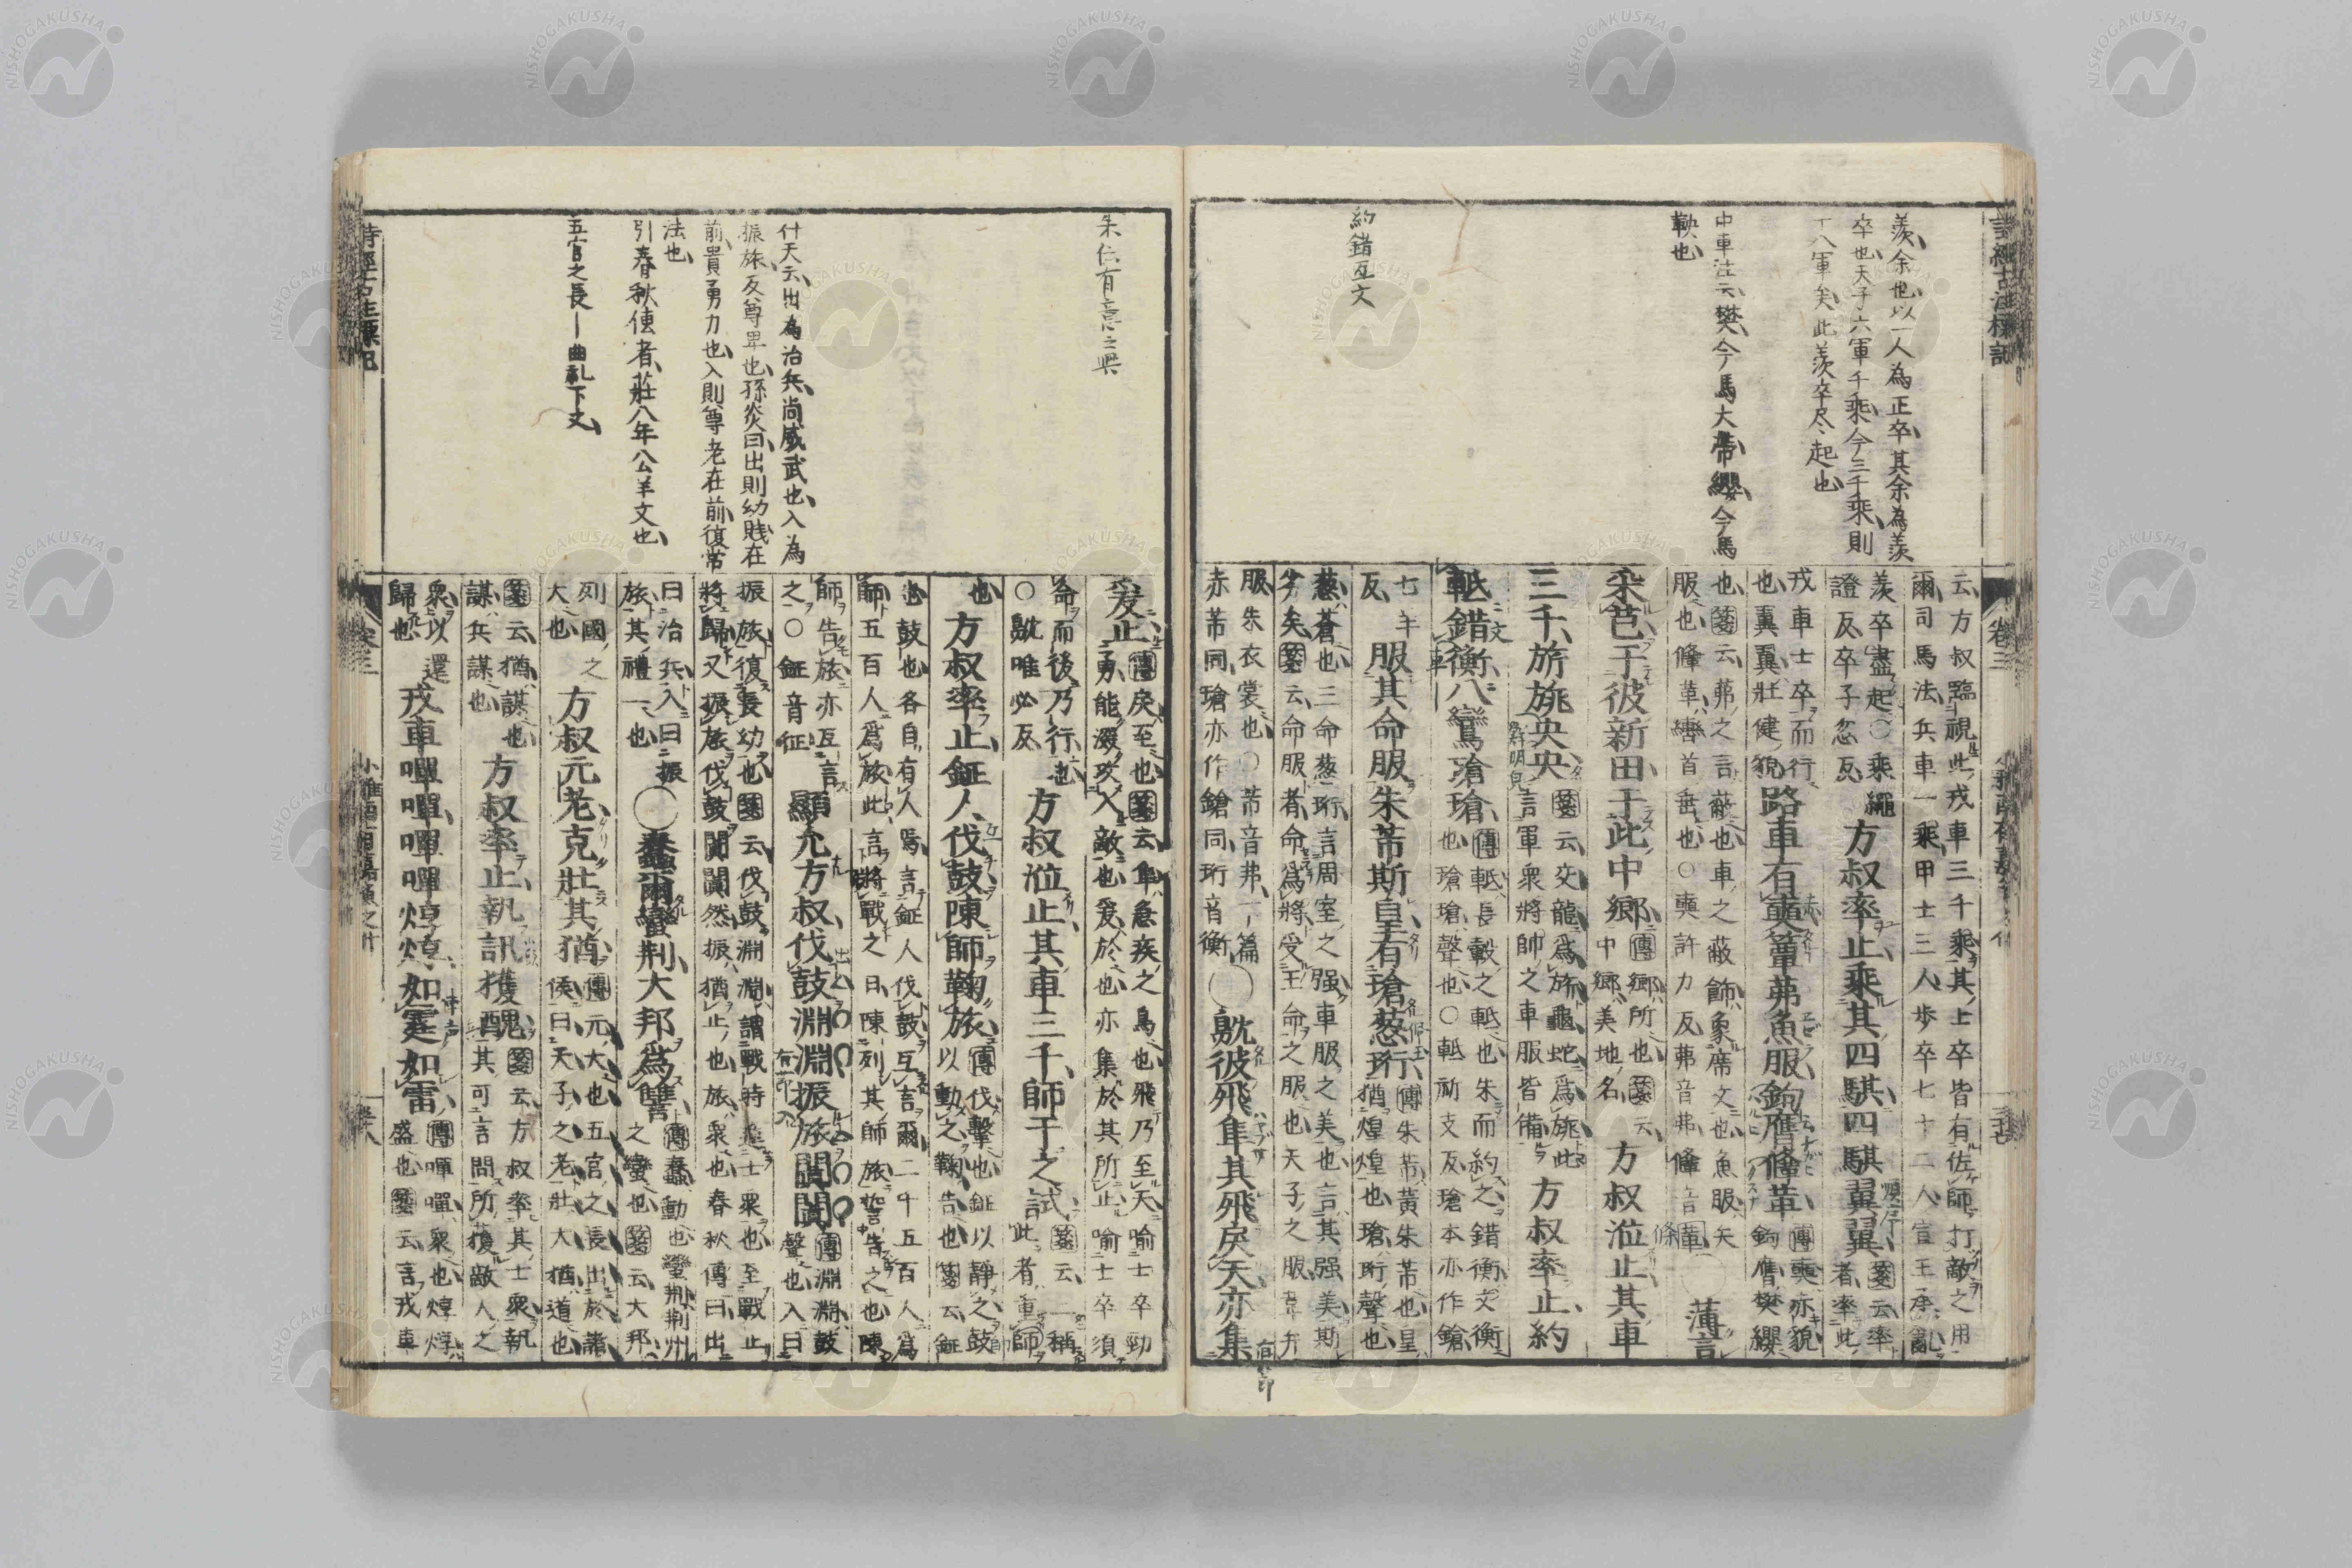 羨余也以一人為正卒其余為羨
卒也天子六軍千乘今三千乘則
十八軍矣此羨卒尽起也
中車注云樊今馬大帶纓今馬
鞅也
約錯互文
云方叔臨視此戎車三千乘其士卒皆有佐師打敵之用
爾司馬法兵車一乘甲士三人歩卒七十二人宣王承亂
羨卒盡起〇乘繩
證反卒子忽反
方叔率止乘其四騏四騏翼翼
箋云率
者率此
戎車士卒而行
也翼翼壯健貌
路車有奭簟茀魚服鉤膺鞗革
傳奭赤貌
鉤膺樊纓
也箋云茀之言蔽也車之蔽飾象席文也魚服矢
服也鞗革轡首垂也〇奭許力反茀音弗鞗音
條
薄言
采芑于彼新田于此中鄉
傳鄉所也箋云
中鄉美地名
方叔涖止其車
三千旂旐央央
箋云交龍爲旂龜蛇爲旐此
言軍衆將帥之車服皆備
方叔率止約
軧錯衡八鸞瑲瑲
傳軧長轂之軧也朱而約之錯衡文衡
也瑲瑲聲也〇軧祈支反瑲本亦作鎗
七羊
反
服其命服朱芾斯皇有瑲葱珩
傳朱芾黃朱芾也皇
猶煌煌也瑲珩聲也
葱蒼也三命葱珩言周室之强車服之美也言其强美斯
劣矣箋云命服者命爲將受王命之服也天子之服韋弁
服朱衣裳也〇芾音弗
赤芾同瑲亦作鎗同珩音衡
〇鴥彼飛隼其飛戾天亦集
朱仁有意之興
什天云出為治兵尚威武也入為
振旅反尊卑也孫炎曰出則幼賤在
前貴勇力也入則尊老在前復常
法也
引春秋傳者莊八年公羊文也
五官之長｜曲礼下文
爰止
傳戾至也箋云隼急疾之鳥也飛乃至天喻士卒勁
勇能深攻入敵也爰於也亦集於其所止喻士卒須
命而後乃行也
〇鴥唯必反
方叔涖止其車三千師干之試
箋云三稱
此者重師
也
方叔率止鉦人伐鼓陳師鞠旅
傳伐擊也鉦以靜之鼓
以動之鞠告也箋云鉦
也鼓也各自有人焉言鉦人伐鼓互言爾二千五百人爲
師五百人爲旅此言將戰之日陳列其師旅誓告之也陳
師告旅亦互言
之〇鉦音征
顯允方叔伐鼓淵淵振旅闐闐
傳淵淵鼓
聲也入曰
振旅復長幼也箋云伐鼓淵淵謂戰時進士衆也至戰止
將歸又振旅伐鼓闐闐然振猶止也旅衆也春秋傳曰出
曰治兵入曰振
旅其禮一也
〇蠢爾蠻荆大邦爲讐
傳蠢動也蠻荆荆州
之蠻也箋云大邦
列國之
大也
方叔元老克壯其猶
傳元大也五官之長出於諸
侯曰天子之老壯大猶道也
箋云猶謀也
謀兵謀也
方叔率止執訊獲醜
箋云方叔率其士衆執
其可言問所獲敵人之
衆以還
歸也
戎車嘽嘽嘽嘽焞焞如霆如雷
傳嘽嘽衆也焞焞
盛也箋云言戎車